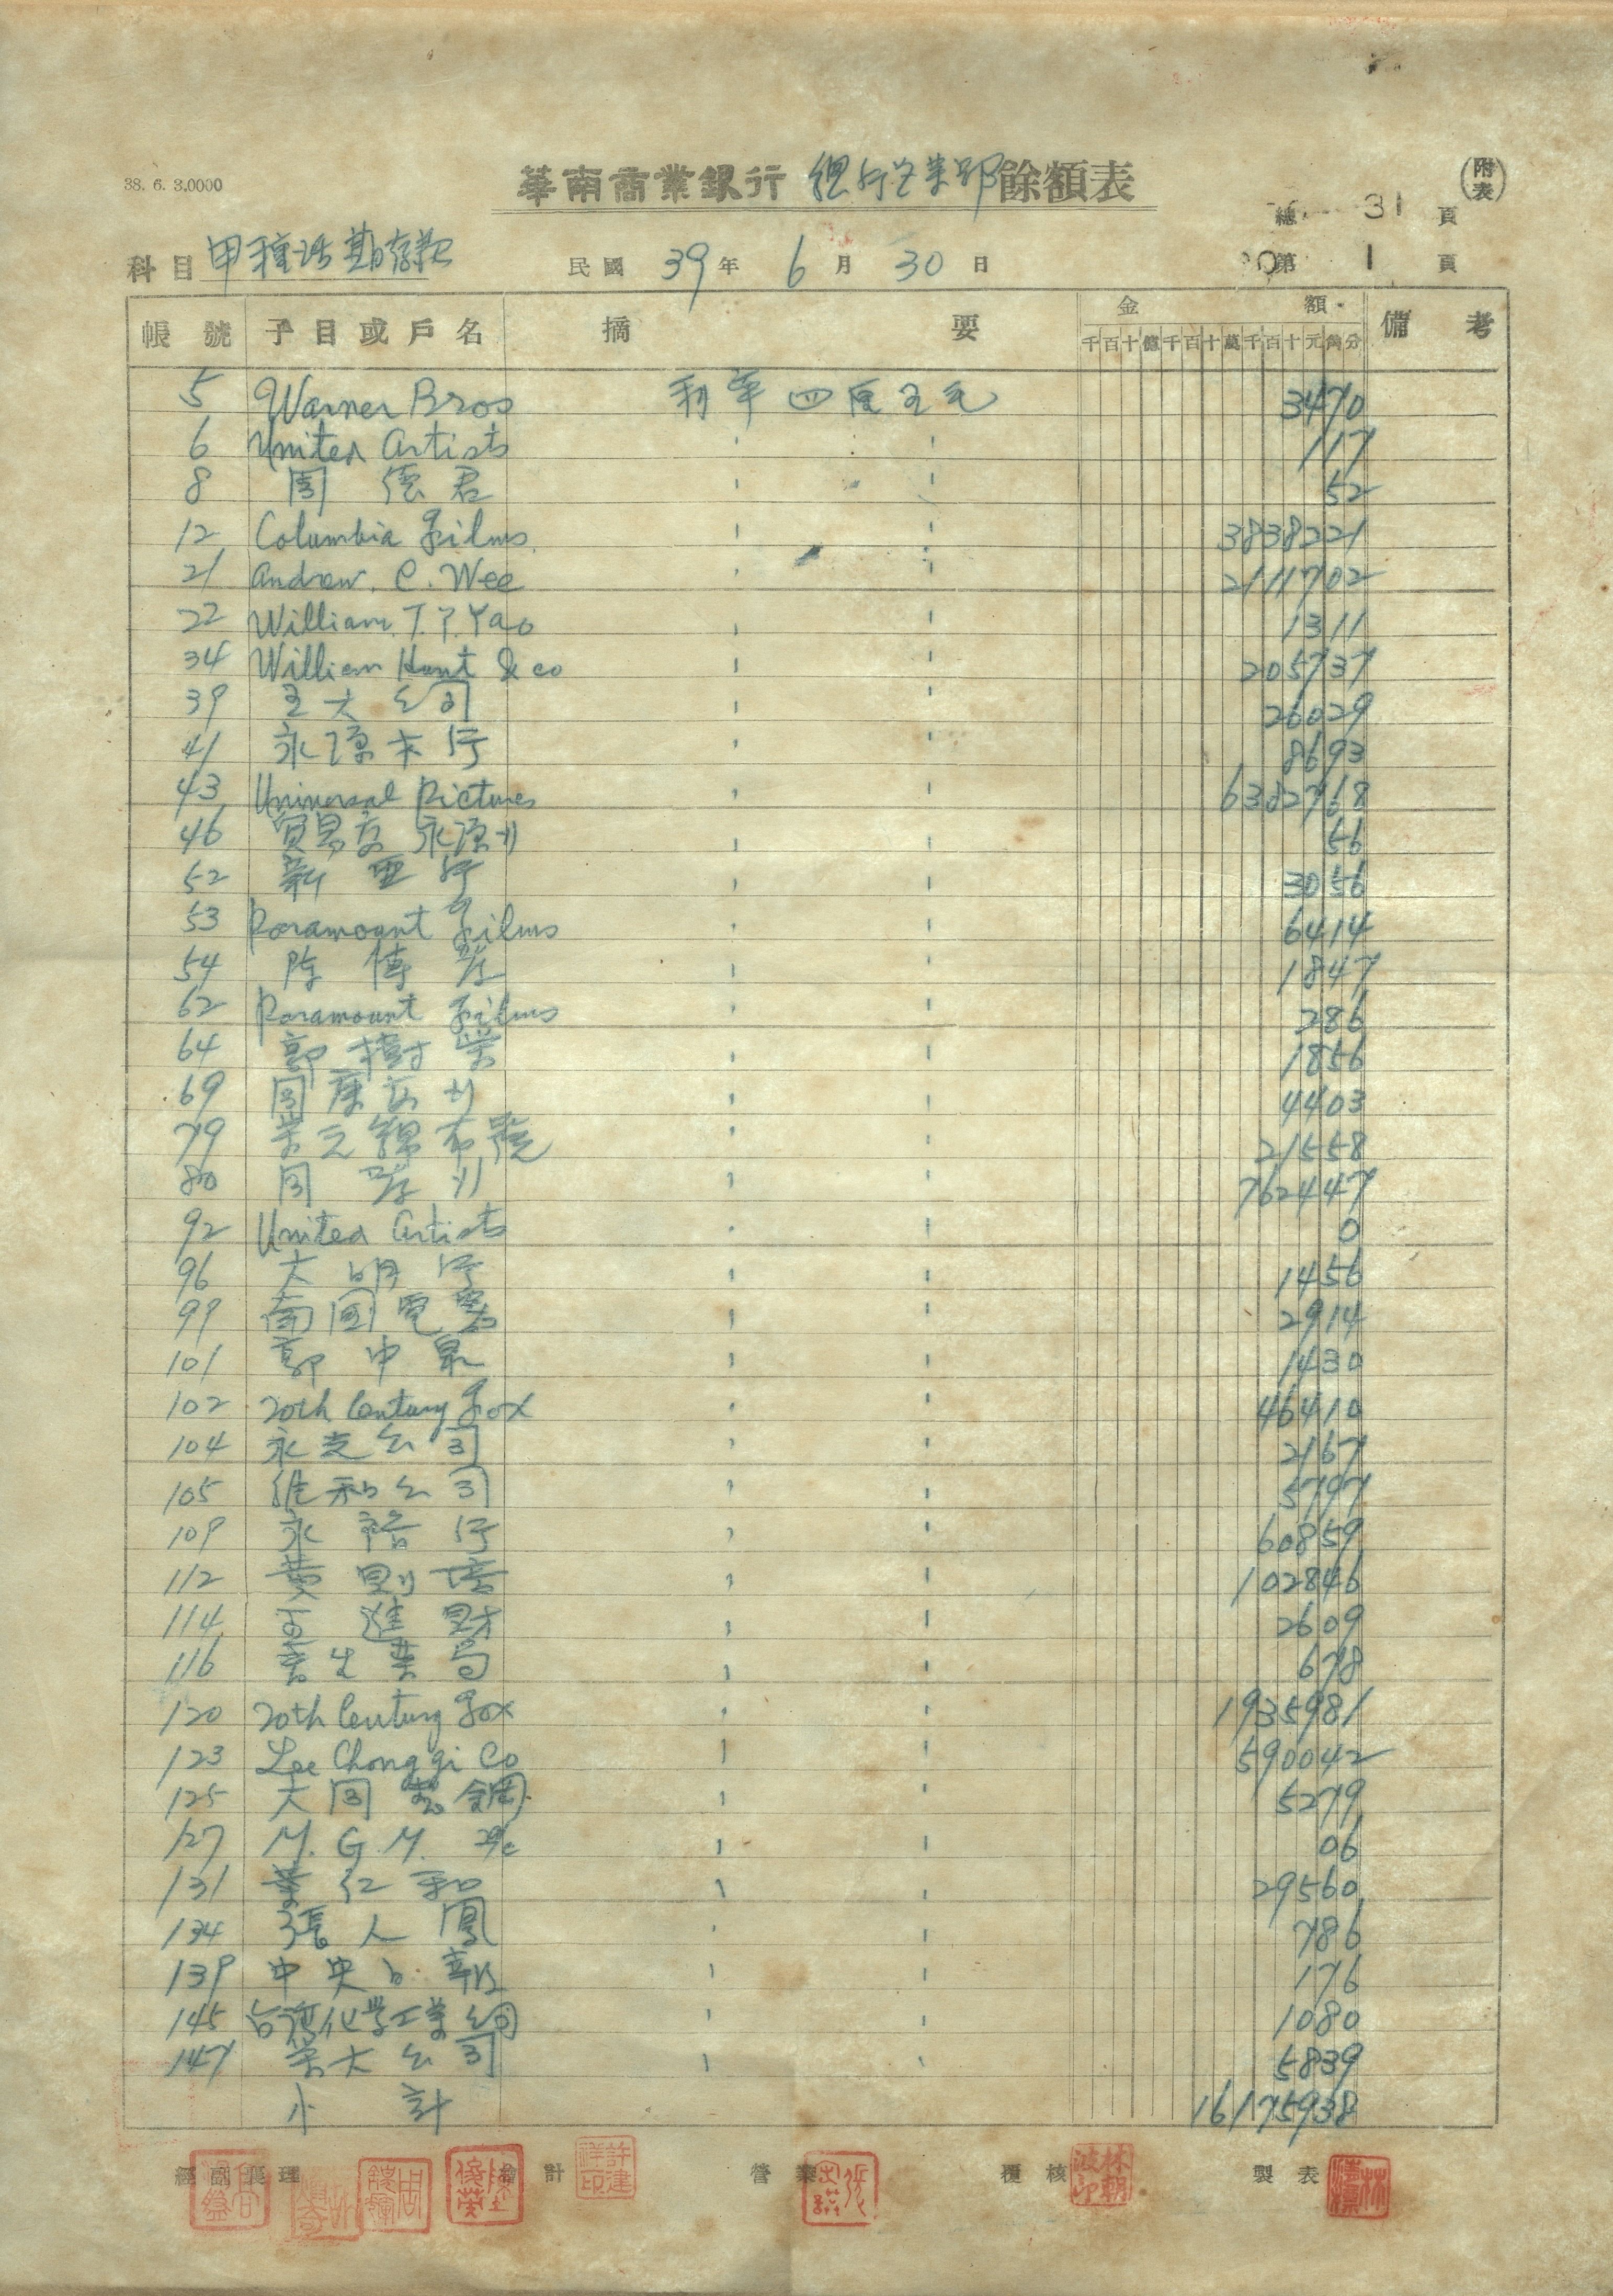 38. 6. 3,0000
華南商業銀行 總行營業部 餘額表
附表
總 31 頁
科目 甲種活期存款 民國 39 年 6 月 30 日 第 1 頁
帳號 子目或戶名 摘要 金額 備考
千百十億千百十萬千百十元角分
5 Warner Bros 利率四厘五毛 3470
6 United Artists 117
8 周德君 52
12 Columbia Films 3838221
21 Andrew. C. Wee 2111702
22 William. T. Y. Yao 1311
34 William Hunt & co 205737
39 大公司 26029
41 永源木行 8693
43 Universal Pictures 6382768
46 貿易 永源 56
52 新亜行 3056
53 Paramount Films 6414
54 陳傳 1847
62 Paramount Films 286
64 郭樹 1856
69 4403
79 布 21558
80 7624447
92 United Artists 0
96 大明行 1456
99 南國電器 2914
101 郭中 1430
102 20th Century Fox 46410
104 永支公司 2167
105 維和公司 5797
109 永裕行 60859
112 黄則 102846
114 進財 2609
116 678
120 20th Century Fox 1935981
123 Lee Chong gi Co 590042
125 大同製鋼 5279
127 M. G. M. 06
131 葉仁和 29560
134 張人鳳 786
139 中央日報 176
145 台灣化學工業公司 1080
147 大公司 5839
小計 16175938
經副襄理 會計 營業 覆核 製表